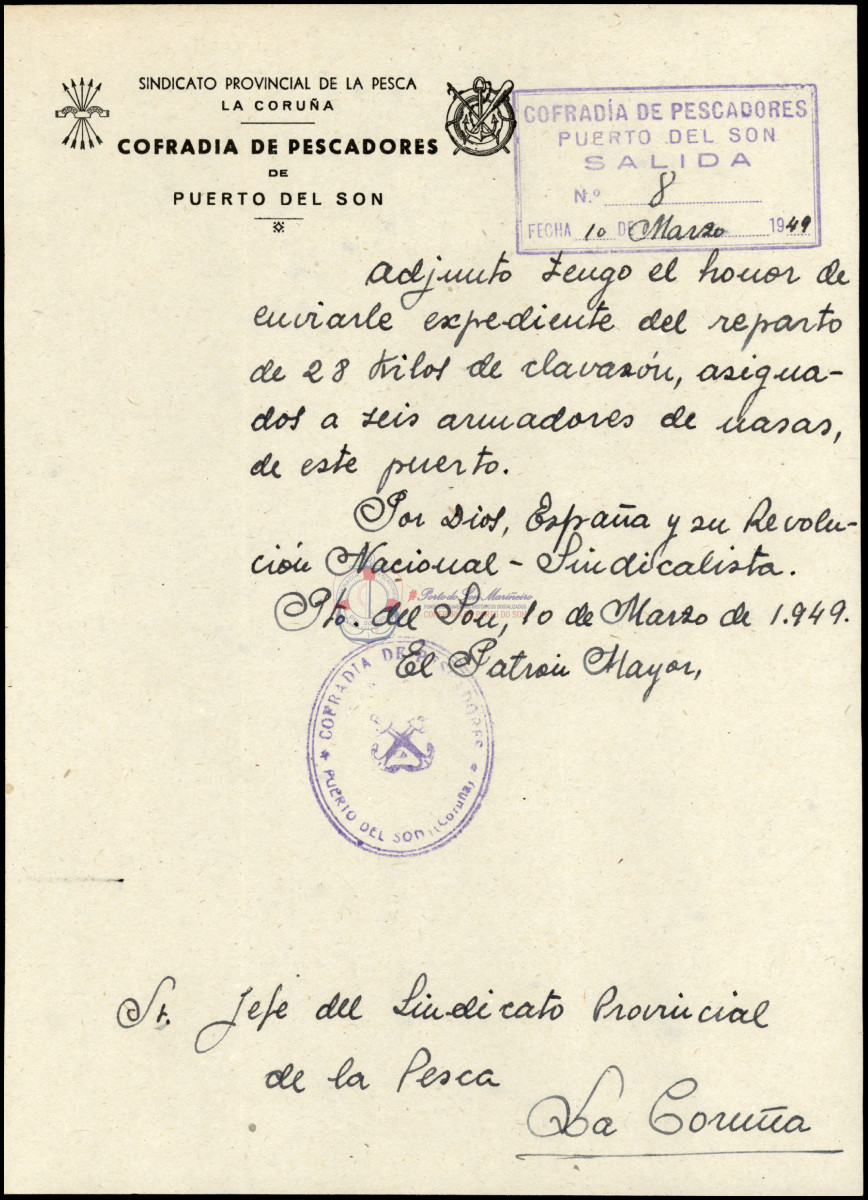 SINDICATO PROVINCIAL DE LA PESCA
LA CORUÑA
COFRADIA DE PESCADORES
DE
PUERTO DEL SON
COFRADÍA DE PESCADORES
PUERTO DEL SON
SALIDA
N.º 8
FECHA 10 DE Marzo 1949
Adjunto tengo el honor de
enviarle expediente del reparto
de 28 kilos de clavazón, asigna-
dos a seis armadores de nasas,
de este puerto.
Por Dios, España y su Revolu-
ción Nacional-Sindicalista.
#Porto do Son Mariñeiro
Pto. del Son, 10 de Marzo de 1.949.
El Patrón Mayor,
COFRADÍA DE PESCADORES
PUERTO DEL SON (Coruña)
Sr. Jefe del Sindicato Provincial
de la Pesca
La Coruña